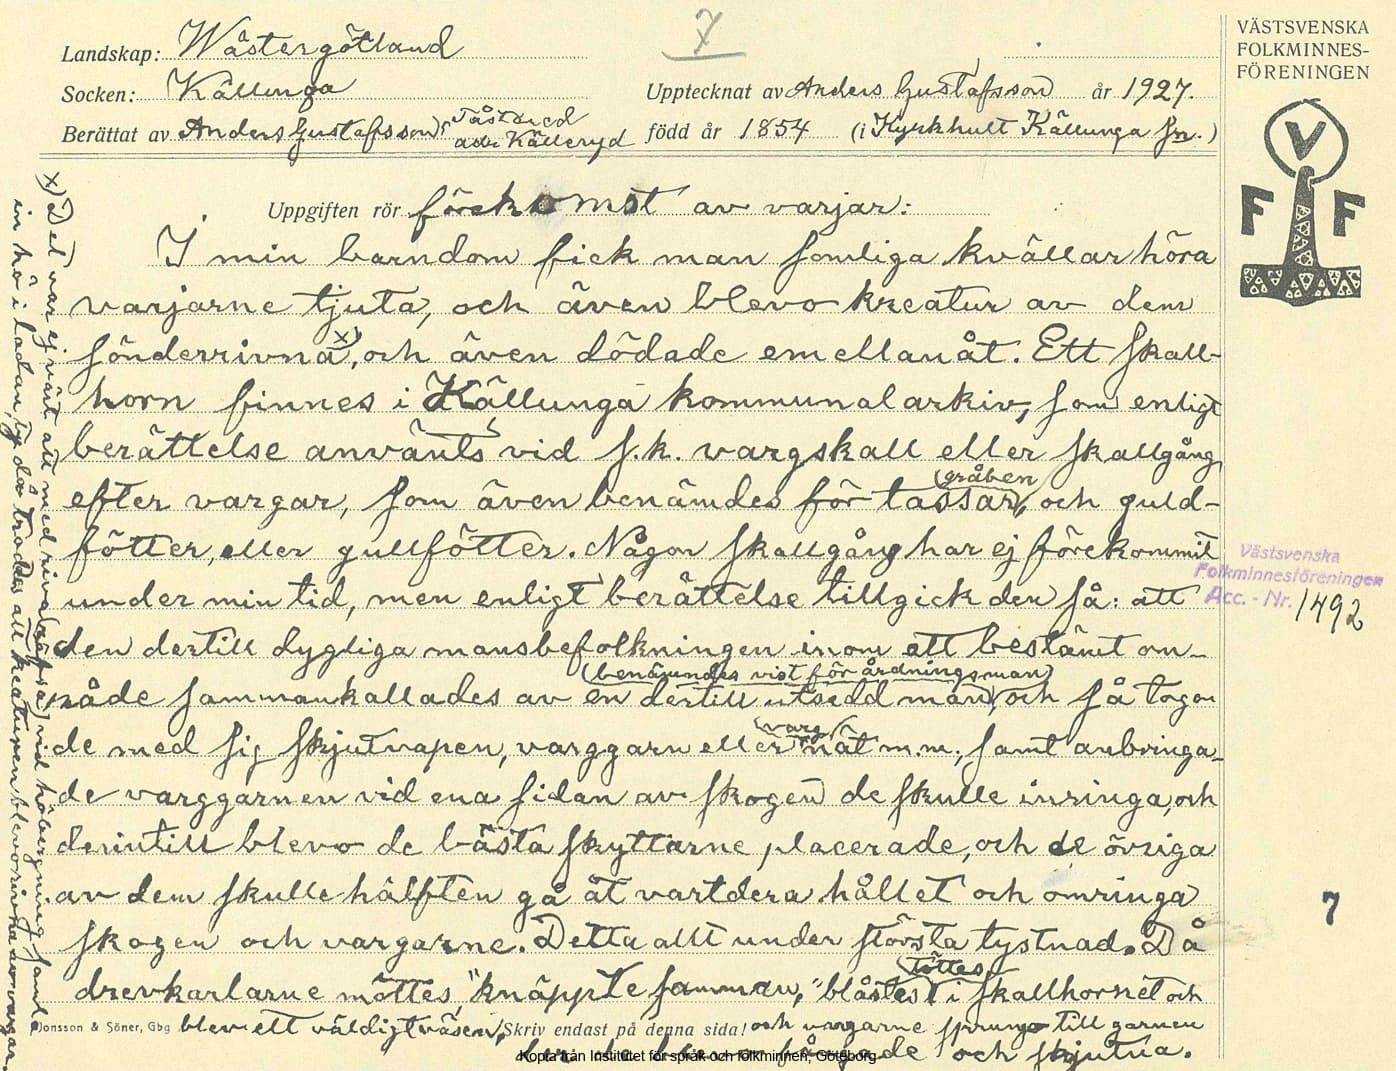 7
Landskap: Wästergötland
Socken: Källunga
Upptecknat av Anders Gustafsson år 1927.
Berättat av Anders Gustafsson, Källeryd född år 1854 (i Kyrkhult Källunga sn.)
Uppgiften rör förekomst av varjar:
I min barndom fick man somliga kvällar höra
varjarne tjuta, och även blevo kreatur av dem
sönderrivna x), och även dödade emellanåt. Ett skall-
horn finnes i Källunga kommunalarkiv, som enligt
berättelse använts vid s.k. vargskall eller skallgång
efter vargar, som även benämdes för tassar, (gråben och guld-
fötter, eller gullfötter. Någon skallgång har ej förekommit
under min tid, men enligt berättelse tillgick den så: att
den dertill dygliga mansbefolkningen inom ett bestämt om-
råde sammankallades av en dertill utsedd man, (benämndes visst för årdningsman) och så togo
de med sig skjutvapen, varggarn eller (varg) nät m.m., samt anbringa-
de varggarnen vid ena sidan av skogen de skulle inringa, och
derintill blevo de bästa skyttarne placerade, och de övriga
av dem skulle hälften gå åt vartdera hållet och omringa
skogen och vargarne. Detta allt under största tystnad. Då
drevkarlarne möttes, "knäppte samman," blåstes (töttes) i skallhornet och
blev ett väldigt väsen, och vargarne sprungo till garnen
och skjutna.
x) Det var ej värt att med riva (räfsa) vid höbergning samla
in hö i ladan, ty då troddes att kreaturen blevo rivna av vargar.
Jonsson & Söner, Gbg
Skriv endast på denna sida!
Kopia från Institutet för språk och folkminnen, Göteborg
VÄSTSVENSKA
FOLKMINNES-
FÖRENINGEN
V
F F
Västsvenska
Folkminnesföreningen
Acc. - Nr. 1492
7